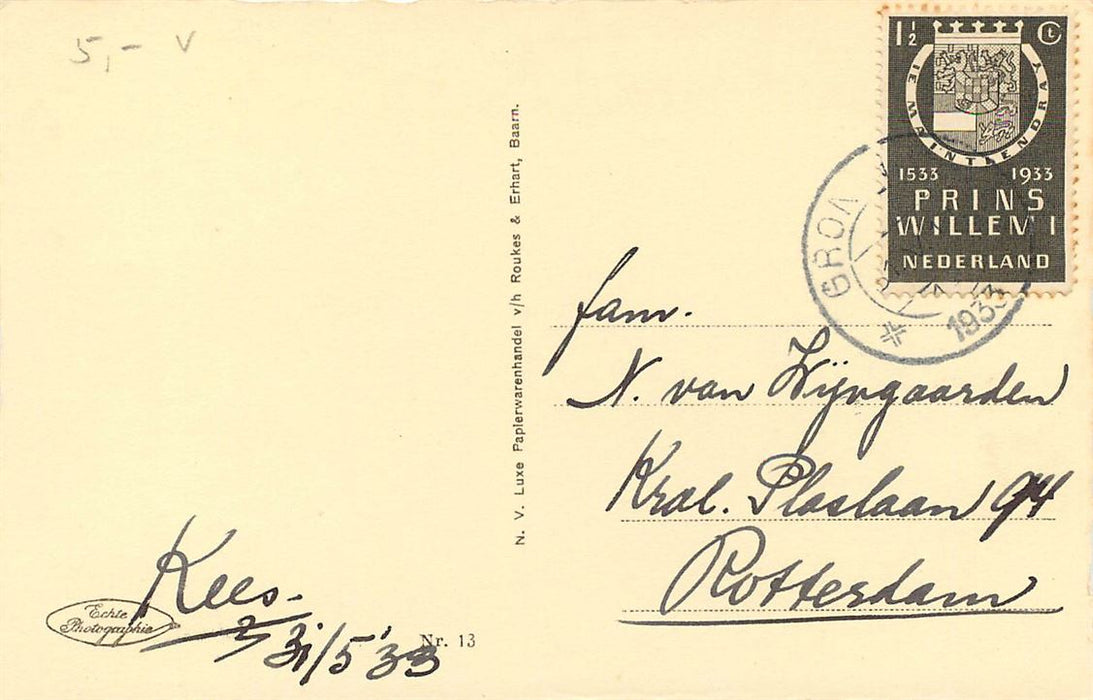 5,- V
1½ Ct
JE MAINTIENDRAY
1533 1933
PRINS
WILLEM I
NEDERLAND
GRON
1933
N. V. Luxe Papierwarenhandel v/h Roukes & Erhart, Baarn.
fam.
N. van Wijngaarden
Kral. Plaslaan 94
Rotterdam
Kees.
31/5 '33
Echte
Photographie
Nr. 13